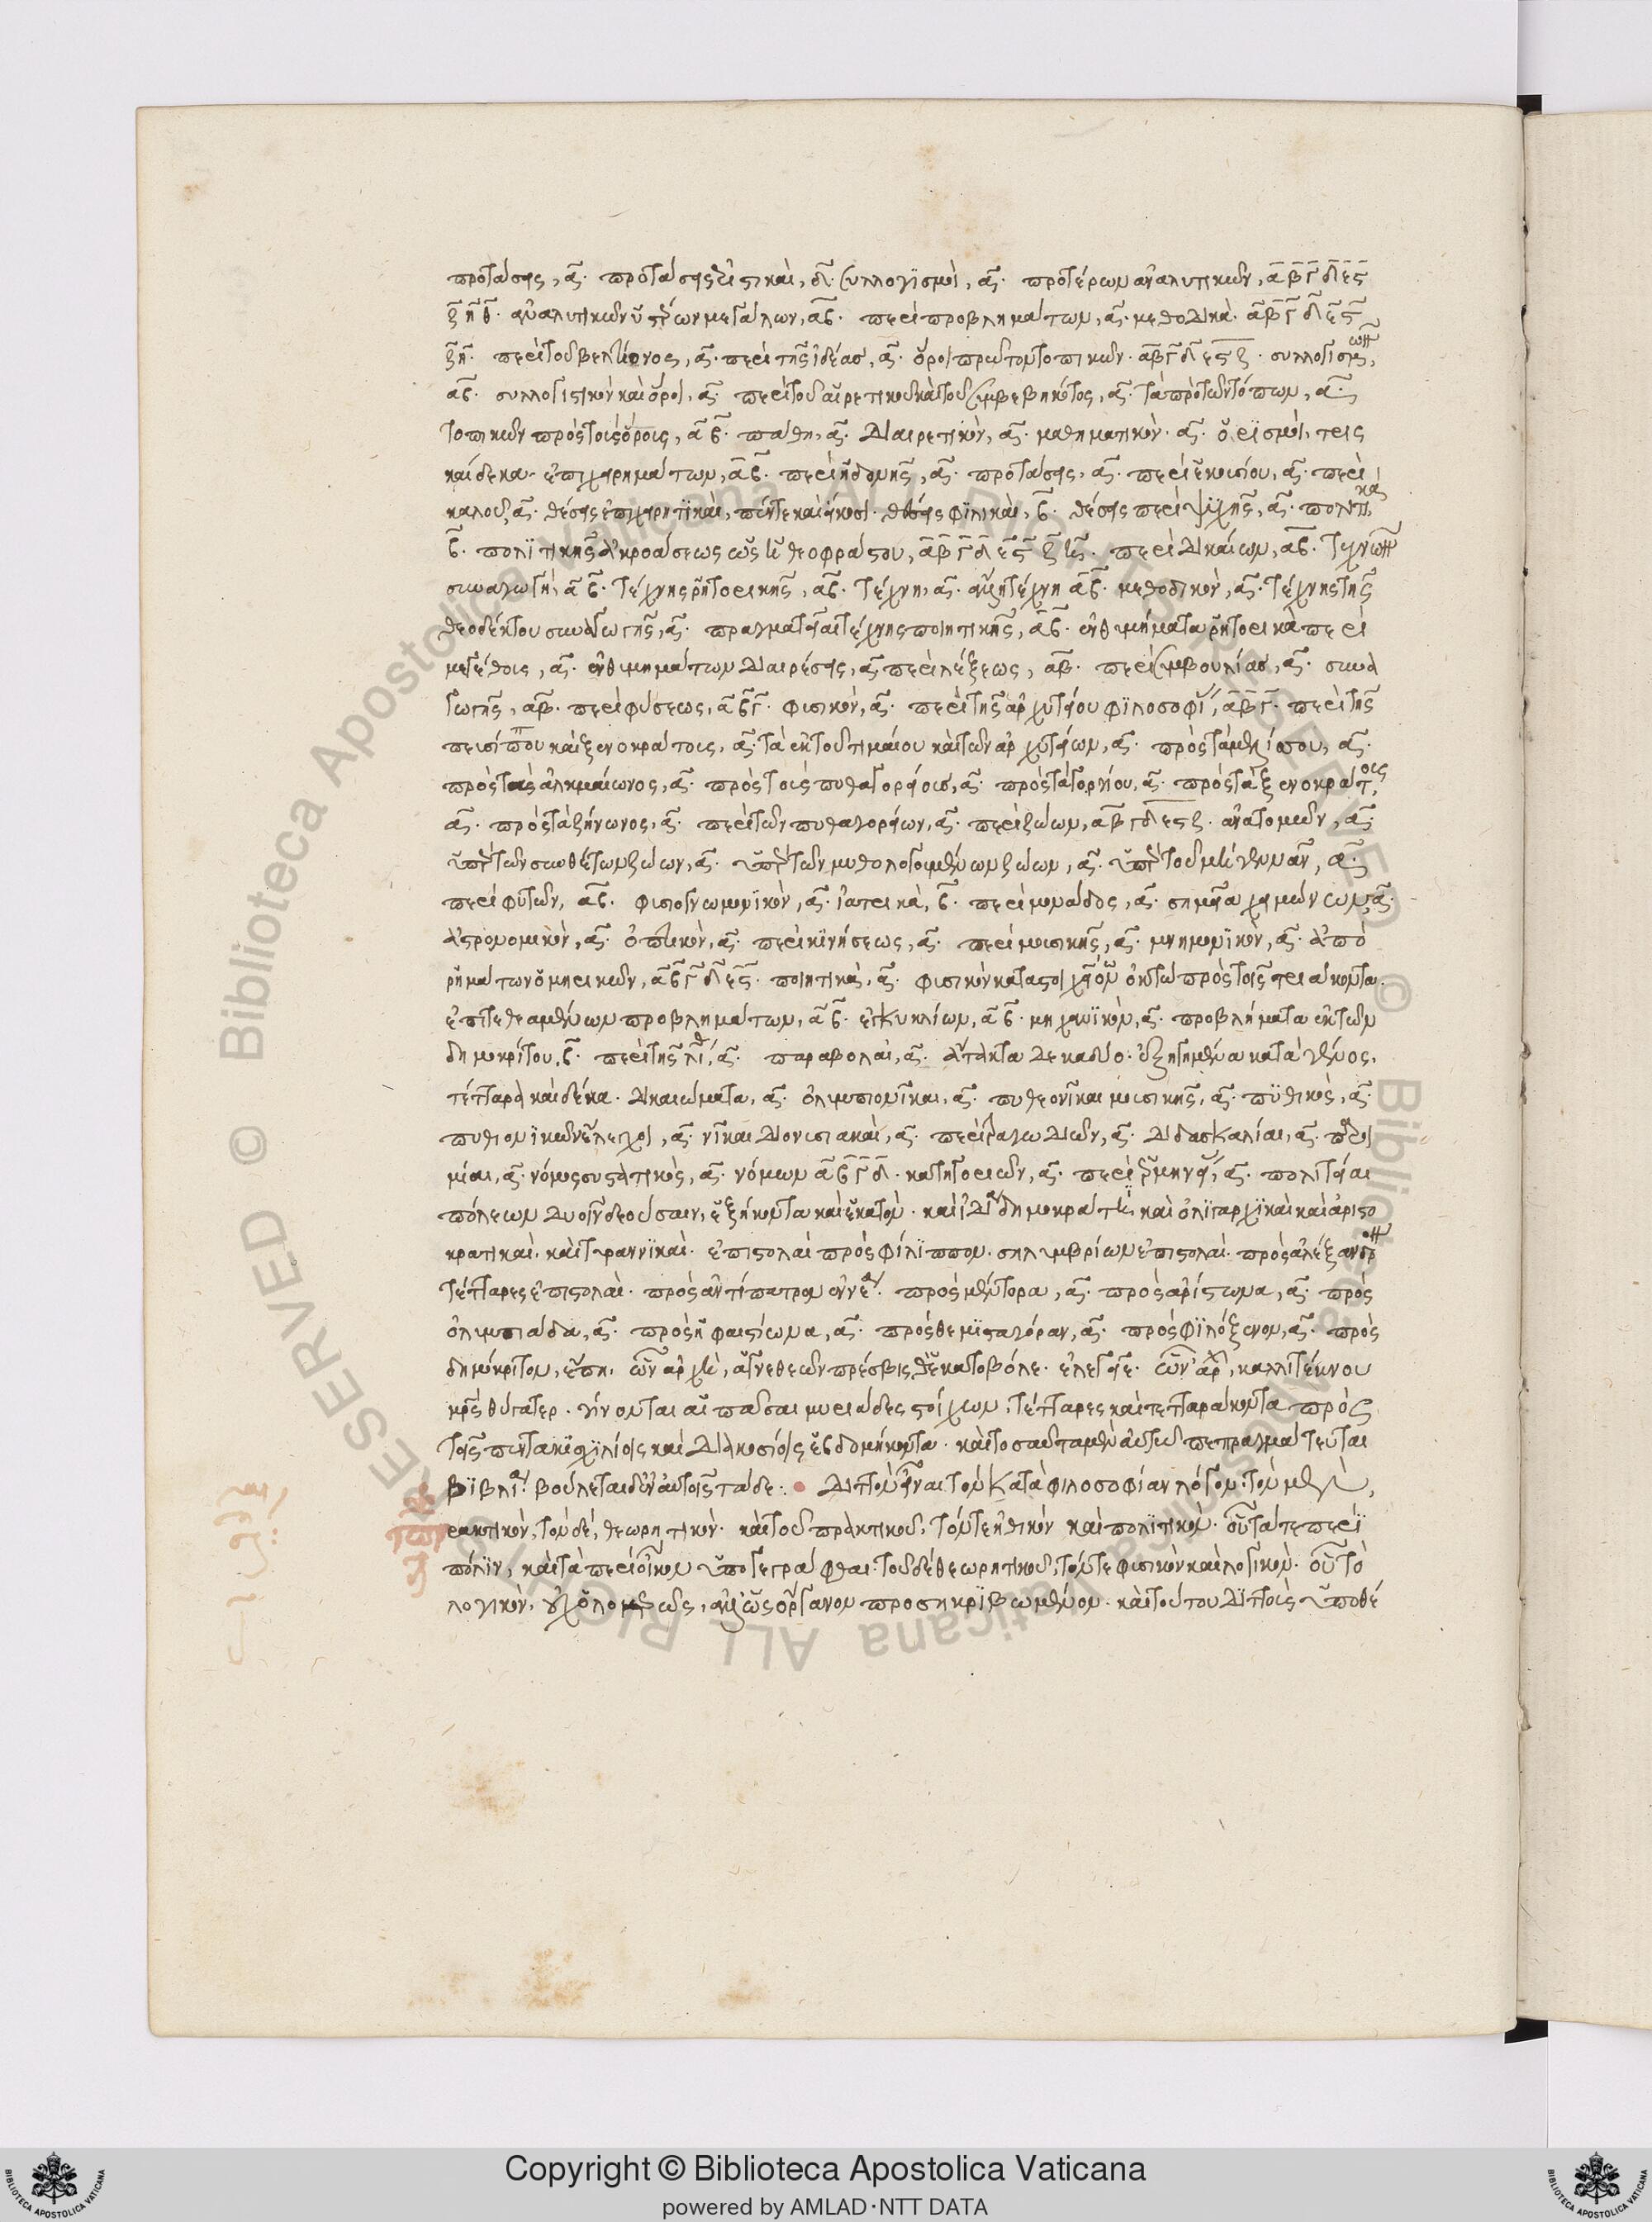 προτάσεις, α̅. προτάσεις ἐριστικαὶ, δ̅. συλλογισμοὶ, α̅. προτέρων ἀναλυτικῶν, α̅ β̅ γ̅ δ̅ ε̅ ς̅
ζ̅ η̅ θ̅. ἀναλυτικῶν ὑστέρων μεγάλων, α̅ β̅. περὶ προβλημάτων, α̅. μεθοδικὰ. α̅ β̅ γ̅ δ̅ ε̅ ς̅
ζ̅ η̅. περὶ τοῦ βελτίονος, α̅. περὶ τῆς ἰδέας, α̅. ὅροι πρὸ τῶν τοπικῶν. α̅ β̅ γ̅ δ̅ ε̅ ς̅ ζ̅. συλλογισμῶν,
α̅ β̅. συλλογιστικὸν καὶ ὅροι, α̅. περὶ τοῦ αἱρετικοῦ καὶ τοῦ συμβεβηκότος, α̅. τὰ πρὸ τῶν τόπων, α̅.
τοπικῶν πρὸς τοὺς ὅρους, α̅ β̅. πάθη, α̅. διαιρετικὸν, α̅. μαθηματικὸν. α̅. ὁρισμοὶ, τρις
καίδεκα. ἐπιχειρημάτων, α̅ β̅. περὶ ἡδονῆς, α̅. προτάσεις, α̅. περὶ ἑκουσίου, α̅. περὶ
καλοῦ, α̅. θέσεις ἐπιχειρητικαὶ, πέντε καὶ εἴκοσι. θέσεις φιλικαὶ, β̅. θέσεις περὶ ψυχῆς, α̅. πολιτικὰ
β̅. πολιτικῆς ἀκροάσεως ὡς ἡ θεοφράστου, α̅ β̅ γ̅ δ̅ ε̅ ς̅ ζ̅ η̅. περὶ δικαίων, α̅ β̅. τεχνῶν
συναγωγὴ, α̅ β̅. τέχνης ῥητορικῆς, α̅ β̅. τέχνη, α̅. ἄλλη τέχνη α̅ β̅. μεθοδικὸν, α̅. τέχνης τῆς
θεοδέκτου συναγωγῆς, α̅. πραγματεῖαι τέχνης ποιητικῆς, α̅ β̅. ἐνθυμήματα ῥητορικὰ περὶ
μεγέθους, α̅. ἐνθυμημάτων διαιρέσεις, α̅. περὶ λέξεως, α̅ β̅. περὶ συμβουλίας, α̅. συνα
γωγῆς, α̅ β̅. περὶ φύσεως, α̅ β̅ γ̅. φυσικὸν, α̅. περὶ τῆς ἀρχυτείου φιλοσοφίας, α̅ β̅ γ̅. περὶ τῆς
πευσίππου καὶ ξενοκράτους, α̅. τὰ ἐκ τοῦ τιμαίου καὶ τῶν ἀρχυτείων, α̅. πρὸς τὰ μελίσσου, α̅.
πρὸς τὰς ἀλκμαίωνος, α̅. πρὸς τοὺς πυθαγορείους, α̅. πρὸς τὰ γοργίου, α̅. πρὸς τὰ ξενοκράτους
α̅. πρὸς τὰ ζήνωνος, α̅. περὶ τῶν πυθαγορείων, α̅. περὶ ζώων, α̅ β̅ γ̅ δ̅ ε̅ ς̅ ζ̅. ἀνατομῶν, α̅.
ὑπὲρ τῶν συνθέτων ζώων, α̅. ὑπὲρ τῶν μυθολογουμένων ζώων, α̅. ὑπὲρ τοῦ μὴ γεννᾶν, α̅.
περὶ φυτῶν, α̅ β̅. φυσιογνωμονικὸν, α̅. ἰατρικὰ, β̅. περὶ μονάδος, α̅. σημεῖα χειμώνων, α̅.
ἀστρονομικὸν, α̅. ὀπτικὸν, α̅. περὶ κινήσεως, α̅. περὶ μουσικῆς, α̅. μνημονικὸν, α̅. ἀπο
ρημάτων ὁμηρικῶν, α̅ β̅ γ̅ δ̅ ε̅ ς̅. ποιητικὰ, α̅. φυσικὸν κατὰ στοιχεῖον ὀκτὼ πρὸς τοῖς τριάκοντα.
ἐπιτεθεαμένων προβλημάτων, α̅ β̅. ἐγκυκλίων, α̅ β̅. μηχανικὸν, α̅. προβλήματα ἐκ τῶν
δημοκρίτου, β̅. περὶ τῆς λίθου, α̅. παραβολαὶ, α̅. ἄτακτα δεκαδύο. ἐξηγημένα κατὰ γένος,
τέτταρα καὶ δέκα. δικαιώματα, α̅. ὀλυμπιονῖκαι, α̅. πυθιονῖκαι μουσικῆς, α̅. πυθικὸς, α̅.
πυθιονικῶν ἔλεγχοι, α̅. νῖκαι διονυσιακαὶ, α̅. περὶ τραγωδιῶν, α̅. διδασκαλίαι, α̅. παροι
μίαι, α̅. νόμος συστατικὸς, α̅. νόμων α̅ β̅ γ̅ δ̅. κατηγοριῶν, α̅. περὶ ἑρμηνείας, α̅. πολιτεῖαι
πόλεων δυοῖν δεούσαιν, ἑξήκοντα καὶ ἑκατὸν. καὶ ἰδίᾳ δημοκρατικαὶ καὶ ὀλιγαρχικαὶ καὶ ἀριστο
κρατικαὶ. καὶ τυραννικαὶ. ἐπιστολαὶ πρὸς φίλιππον. σηλυμβρίων ἐπιστολαὶ. πρὸς ἀλέξανδρον
τέτταρες ἐπιστολαὶ. πρὸς ἀντίπατρον ἐννέα. πρὸς μέντορα, α̅. πρὸς ἀρίστωνα, α̅. πρὸς
ὀλυμπιάδα, α̅. πρὸς ἡφαιστίωνα, α̅. πρὸς θεμισταγόραν, α̅. πρὸς φιλόξενον, α̅. πρὸς
δημόκριτον, ἔπη. ὧν ἀρχὴ, ἁγνὲ θεῶν πρέσβισθ' ἑκατηβόλε. ἐλεγεῖα. ὧν ἀρχὴ, καλλιτέκνου
μητρὸς θύγατερ. γίνονται αἱ πᾶσαι μυριάδες στίχων, τέτταρες καὶ τετταράκοντα πρὸς
τοῖς πεντακισχιλίοις καὶ διακοσίοις ἑβδομήκοντα. καὶ τοσαῦτα μὲν αὐτῷ πεπραγμάτευται
βιβλία. βούλεται δὲ ἐν αὐτοῖς τάδε. διττὸν εἶναι τὸν κατὰ φιλοσοφίαν λόγον. τὸν μὲν,
πρακτικὸν, τὸν δὲ, θεωρητικὸν. καὶ τοῦ πρακτικοῦ, τόν τε ἠθικὸν καὶ πολιτικὸν. οὗ τά τε περὶ
πόλιν, καὶ τὰ περὶ οἶκον ὑπογεγράφθαι. τοῦ δὲ θεωρητικοῦ, τόν τε φυσικὸν καὶ λογικὸν. οὗ τὸ
λογικὸν, οὐχ ὁλομερῶς, ἀλλ' ὡς ὄργανον προσηκριβωμένον. καὶ τούτου διττοὺς ὑποθέ